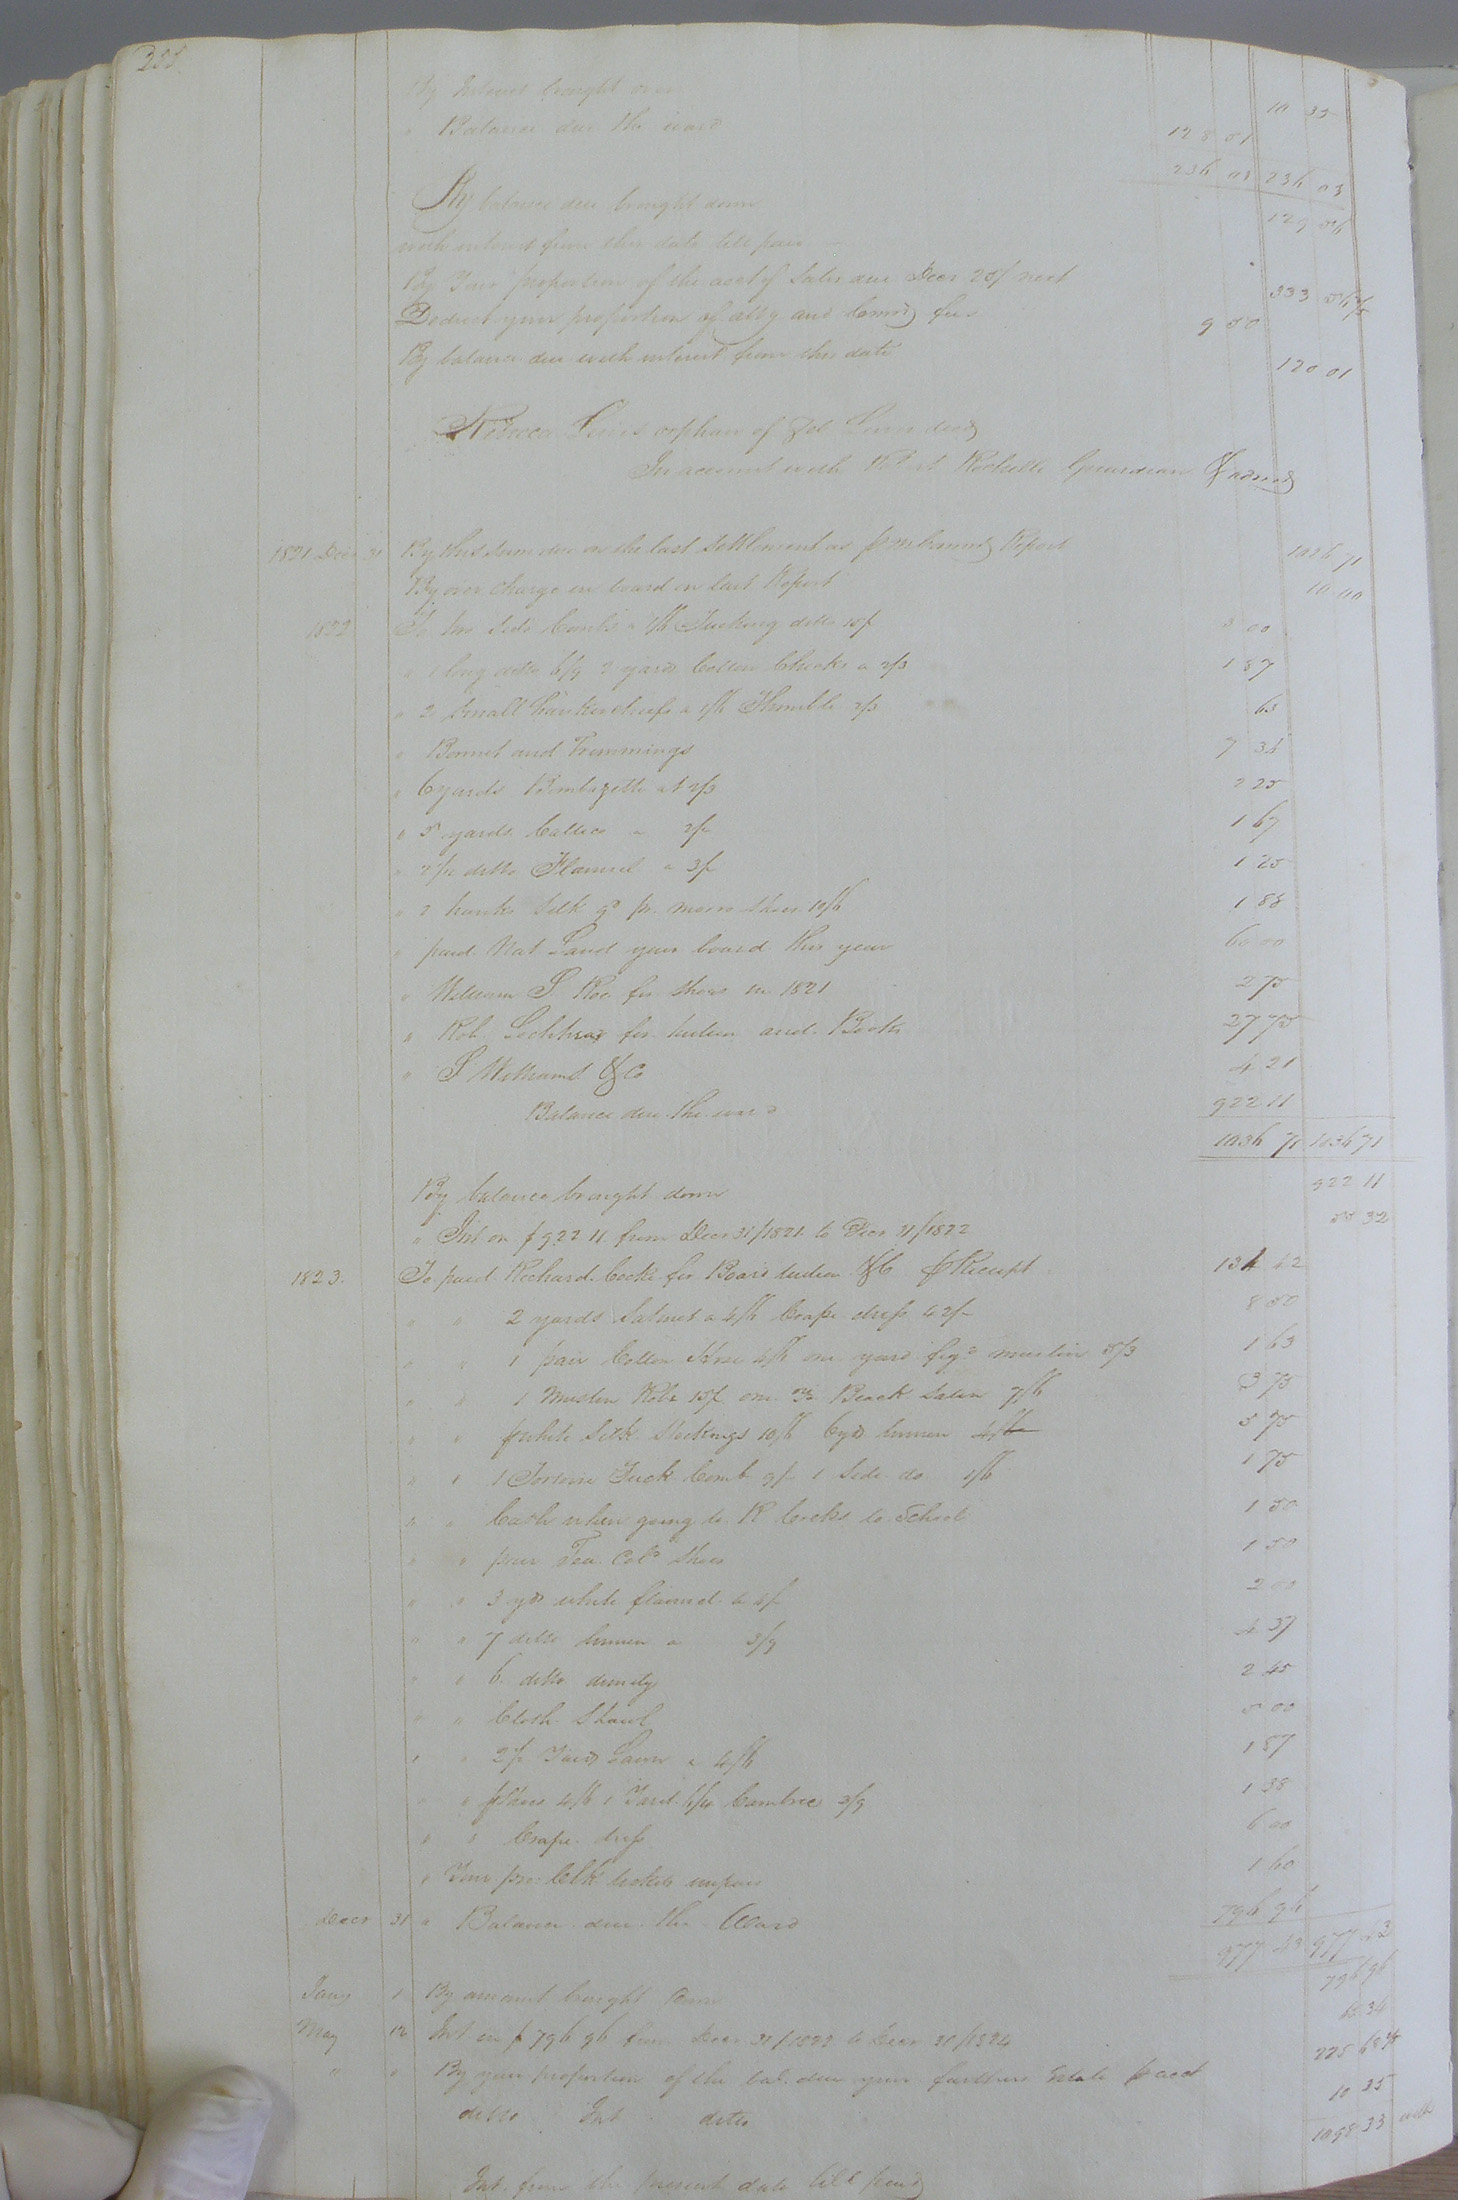 By Interest brought over 10 35
" Balance due the ward 128 01
236 03 236 03
By balance due brought down 129 56
with interest from this date till paid
By Your proportion of the acct of Sales due Decr 25/ next 333
Deduct your proportion of atty and Commrs fees 9 50
By balance due with interest from this date 120 01
Rebecca Lewis orphan of Lewis decd
In account with Robert Rochelle Guardian & admr
1821 Decr 31 By this sum due on the last Settlement as pr Commrs Report 1026 71
By over charge in board in last Report 10 00
1822 To two Side Combs a 1/6 Tucking ditto 15/ 3 00
" 1 long ditto 6/9 2 yards Cotton Checks a 2/3 1 87
" 2 Small hankerchiefs a 1/6 Thimble 2/3 63
" Bonnet and Trimmings 7 36
" 6 yards Bombazette at 2/3 2 25
" 5 yards Callico a 2/- 1 67
" 2½ ditto Flannel a 3/- 1 25
" 2 hanks Silk 9d pr. moro Shoes 10/6 1 88
" paid Nat Land your board this year 60 00
" William S Roe for shoes in 1821 2 75
" Rob for tuition and Books 27 75
" S Williams & Co 4 21
Balance due the ward 922 11
1036 71 1036 71
By balance brought down 922 11
" Int on $922 11 from Decr 31/1821 to Decr 31/1822 55 32
1823. To paid Richard Cocke for Board tuition &C pr Receipt 134 42
" " 2 yards Satinet a 4/6 Crape dress 42/- 8 50
" " 1 pair Cotton Hose 4/6 one yard figd muslin 5/3 1 63
" " 1 Muslin Robe 15/ one yd Black Satin 7/6 3 75
" " pr white Silk Stockings 10/6 6 yds linnen 4/- 5 75
" " 1 Tortoise Tuck Comb 9/- 1 Side do 1/6 1 75
" " Cash when going to R Cockes to School 1 50
" " pair Tea Cold Shoes 1 50
" " 3 yds white flannel a 4/ 2 00
" " 7 ditto linnen a 3/9 4 37
" " 6 ditto dimity 2 45
" " Cloth Shawl 5 00
" " 2½ Yards Lawn a 4/6 1 87
" " pr Shoes 4/6 1 Yard 6/4 Cambric 3/9 1 38
" " Crape dress 6 00
" Your pro Clk tickets unpaid 1 60
Decr 31 " Balance due the Ward 796 96
977 43 977 43
Jany 1 By amount brought down 796 96
May 12 Int on $796 96 from Decr 31/1822 to Decr 31/1824 65 34
" " By your proportion of the bal. due your fathers Estate pr acct 225 68
ditto Int ditto 10 35
1098 33 with
Int. from the present date till paid